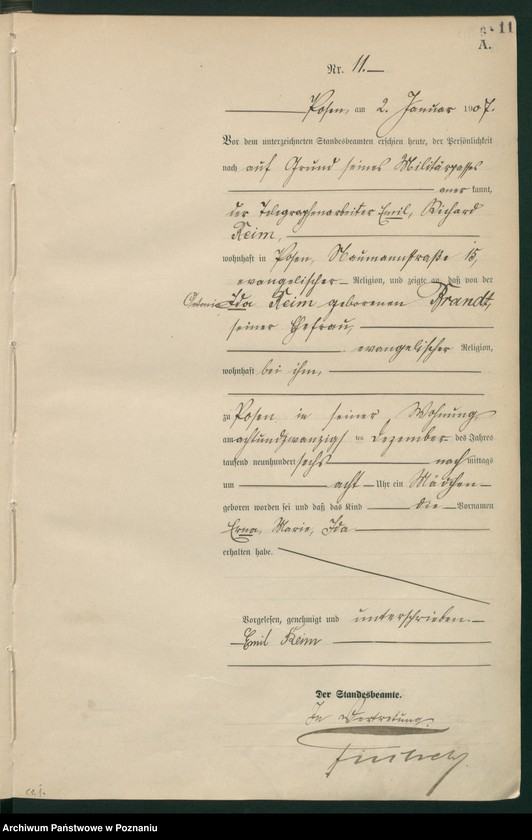 11
A.
Nr. 11.
Posen, am 2. Januar 1907.
Vor dem unterzeichneten Standesbeamten erschien heute, der Persönlichkeit
nach auf Grund seines Militärpasses
anerkannt,
der Telegraphenarbeiter Emil, Richard
Keim,
wohnhaft in Posen, Naumannstraße 15,
evangelischer Religion, und zeigte an, daß von der
Ida Keim geborenen Brandt,
seiner Ehefrau,
evangelischer Religion,
wohnhaft bei ihm,
zu Posen in seiner Wohnung
am achtundzwanzigsten Dezember des Jahres
tausend neunhundert sechs nach mittags
um acht Uhr ein Mädchen
geboren worden sei und daß das Kind die Vornamen
Erna, Marie, Ida
erhalten habe.
Vorgelesen, genehmigt und unterschrieben.
Emil Keim
Der Standesbeamte.
In Vertretung.
Archiwum Państwowe w Poznaniu